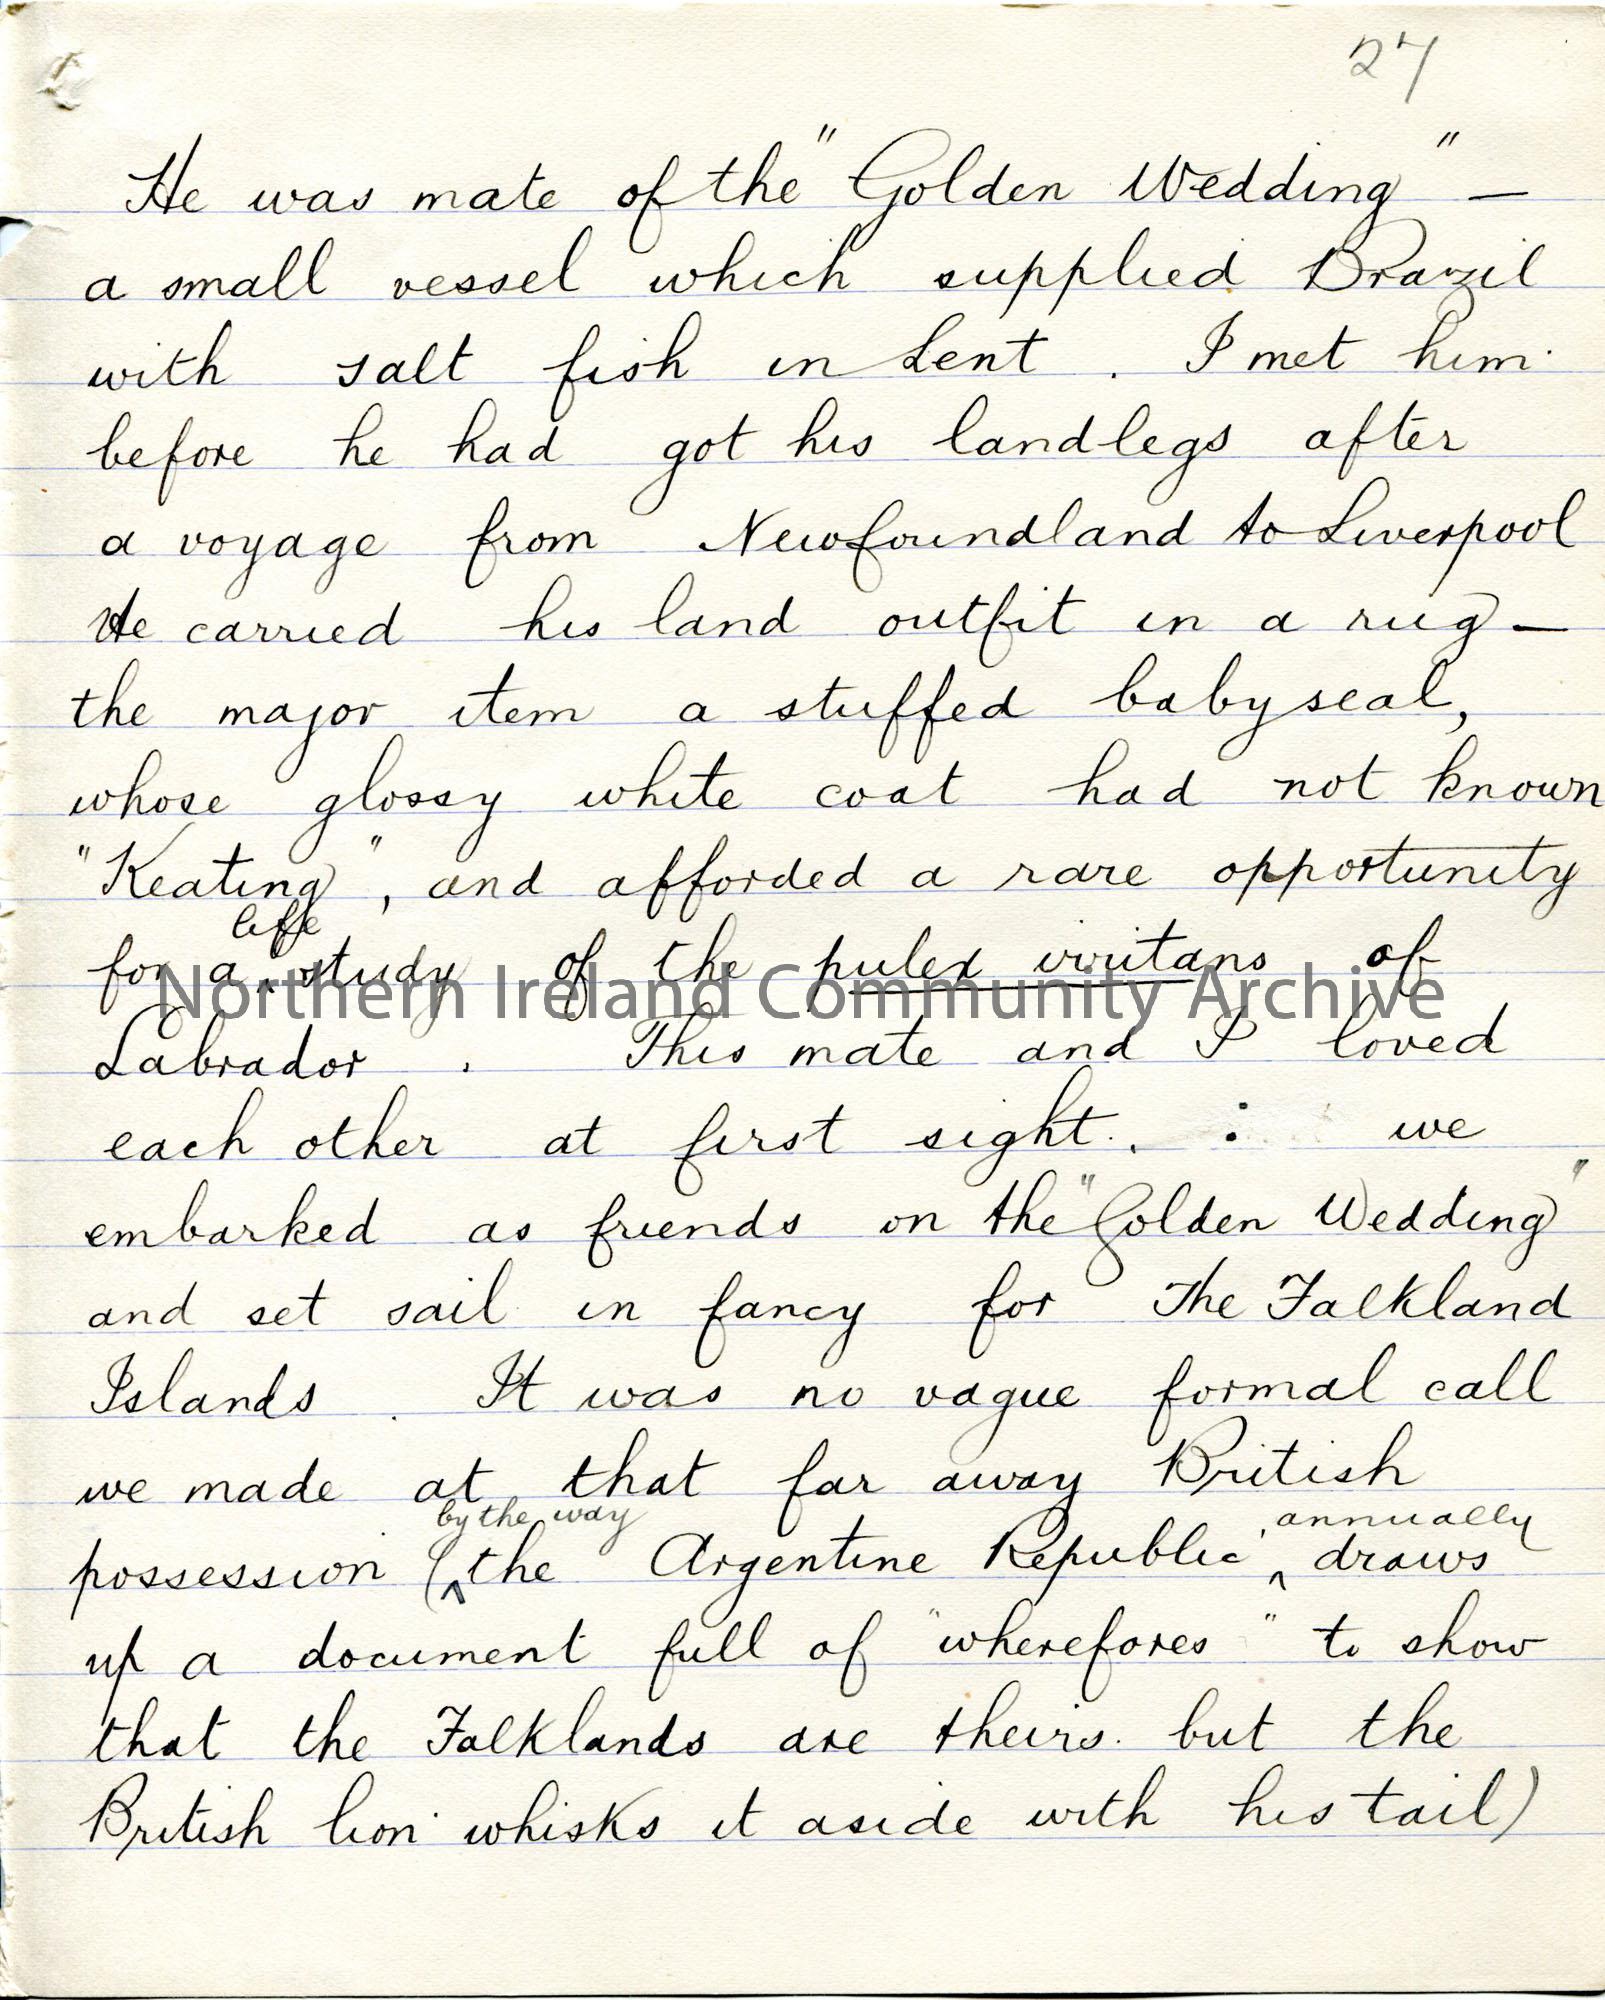 27
He was mate of the "Golden Wedding" —
a small vessel which supplied Brazil
with salt fish in Lent. I met him
before he had got his landlegs after
a voyage from Newfoundland to Liverpool
He carried his land outfit in a rug —
the major item a stuffed baby seal,
whose glossy white coat had not known
"Keating", and afforded a rare opportunity
life
for a ‸ study of the pulex irritans of
Northern Ireland Community Archive
Labrador. This mate and I loved
each other at first sight. : we
embarked as friends on the "Golden Wedding"
and set sail in fancy for The Falkland
Islands. It was no vague formal call
we made at that far away British
by the way annually
possession (‸the Argentine Republic ‸ draws
up a document full of "wherefores" to show
that the Falklands are theirs. but the
British lion whisks it aside with his tail)